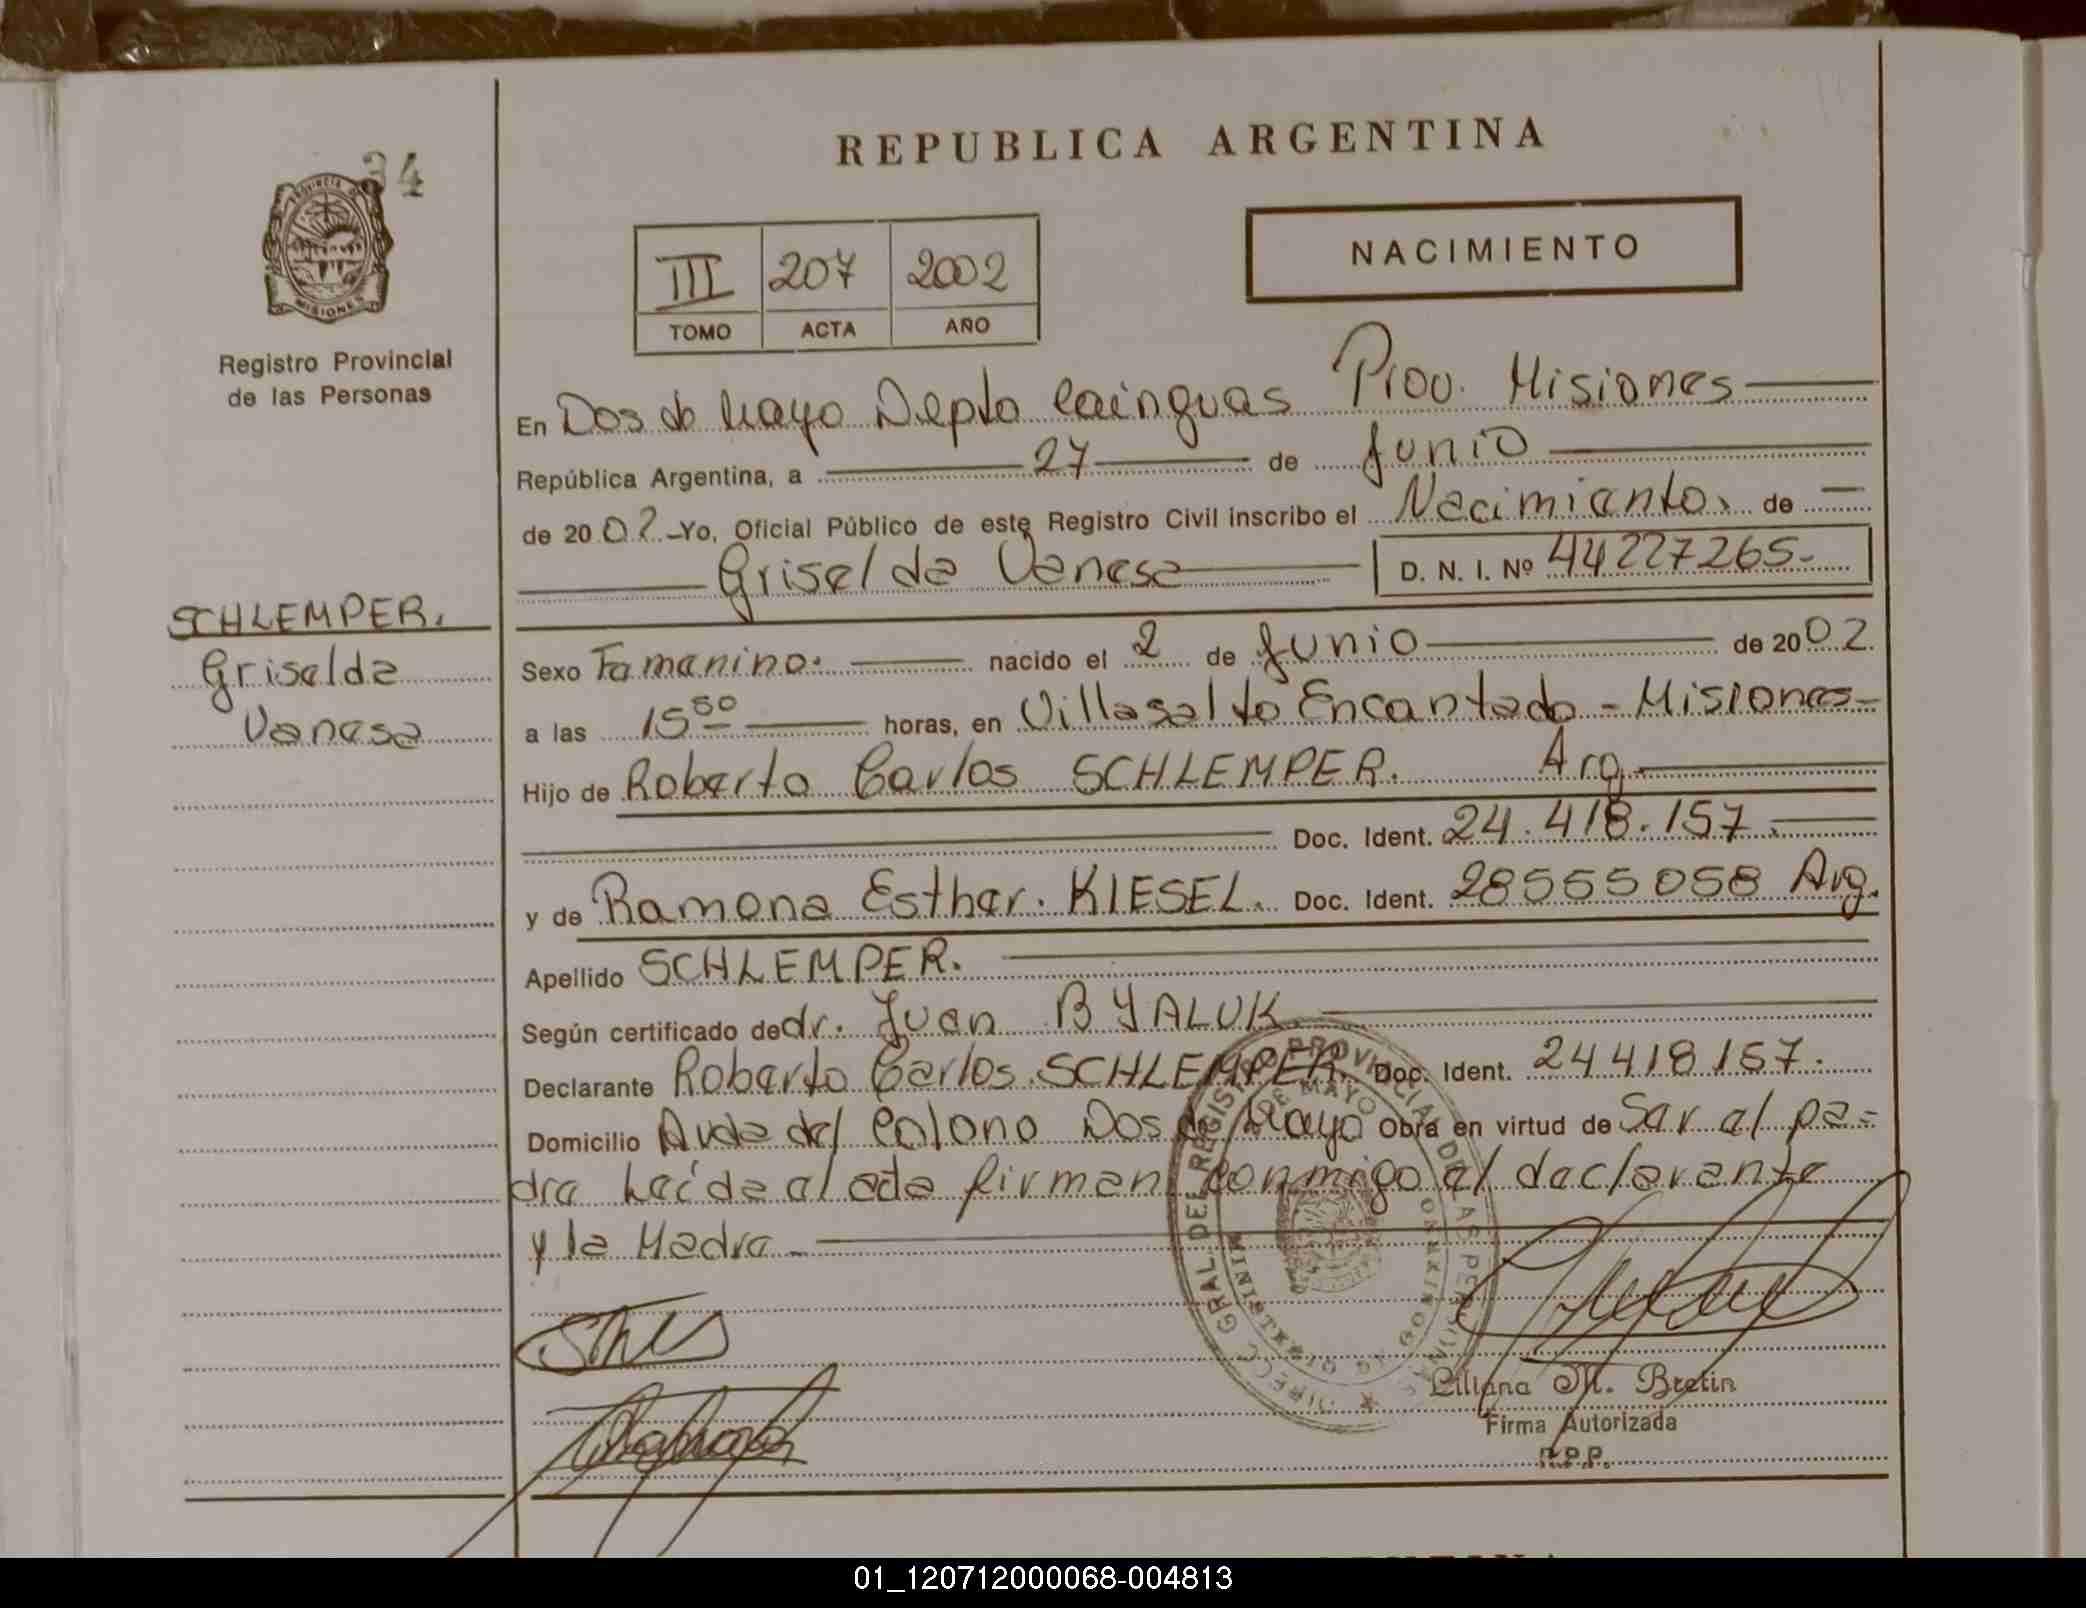 34
REPUBLICA ARGENTINA
PROVINCIA DE
MISIONES
Registro Provincial
de las Personas
III 207 2002
TOMO ACTA AÑO
NACIMIENTO
En Dos de Mayo Depto Cainguas Prov. Misiones
República Argentina, a 27 de Junio
de 2002 - Yo, Oficial Público de este Registro Civil inscribo el Nacimiento. de
Griselda Vanesa D. N. I. Nº 44227265-
SCHLEMPER.
Griselda
Vanesa
Sexo Femenino. nacido el 2 de Junio de 2002.
a las 15 50 horas, en Villa Salto Encantado - Misiones -
Hijo de Roberto Carlos SCHLEMPER. Arg.
Doc. Ident. 24.418.157.
y de Ramona Esther. KIESEL. Doc. Ident. 28555058 Arg.
Apellido SCHLEMPER.
Según certificado de dr. Juan BYALUK
Declarante Roberto Carlos SCHLEMPER. Doc. Ident. 24418157.
Domicilio Avda del Colono Dos de Mayo Obra en virtud de Ser el pa=
dre Leída el acta firman conmigo el declarante
y la Madre -
DIRECC. GRAL. DEL REGISTRO PROVINCIAL DE LAS PERSONAS
DE MAYO
Liliana M. Bretin
Firma Autorizada
R.P.P.
01_120712000068-004813